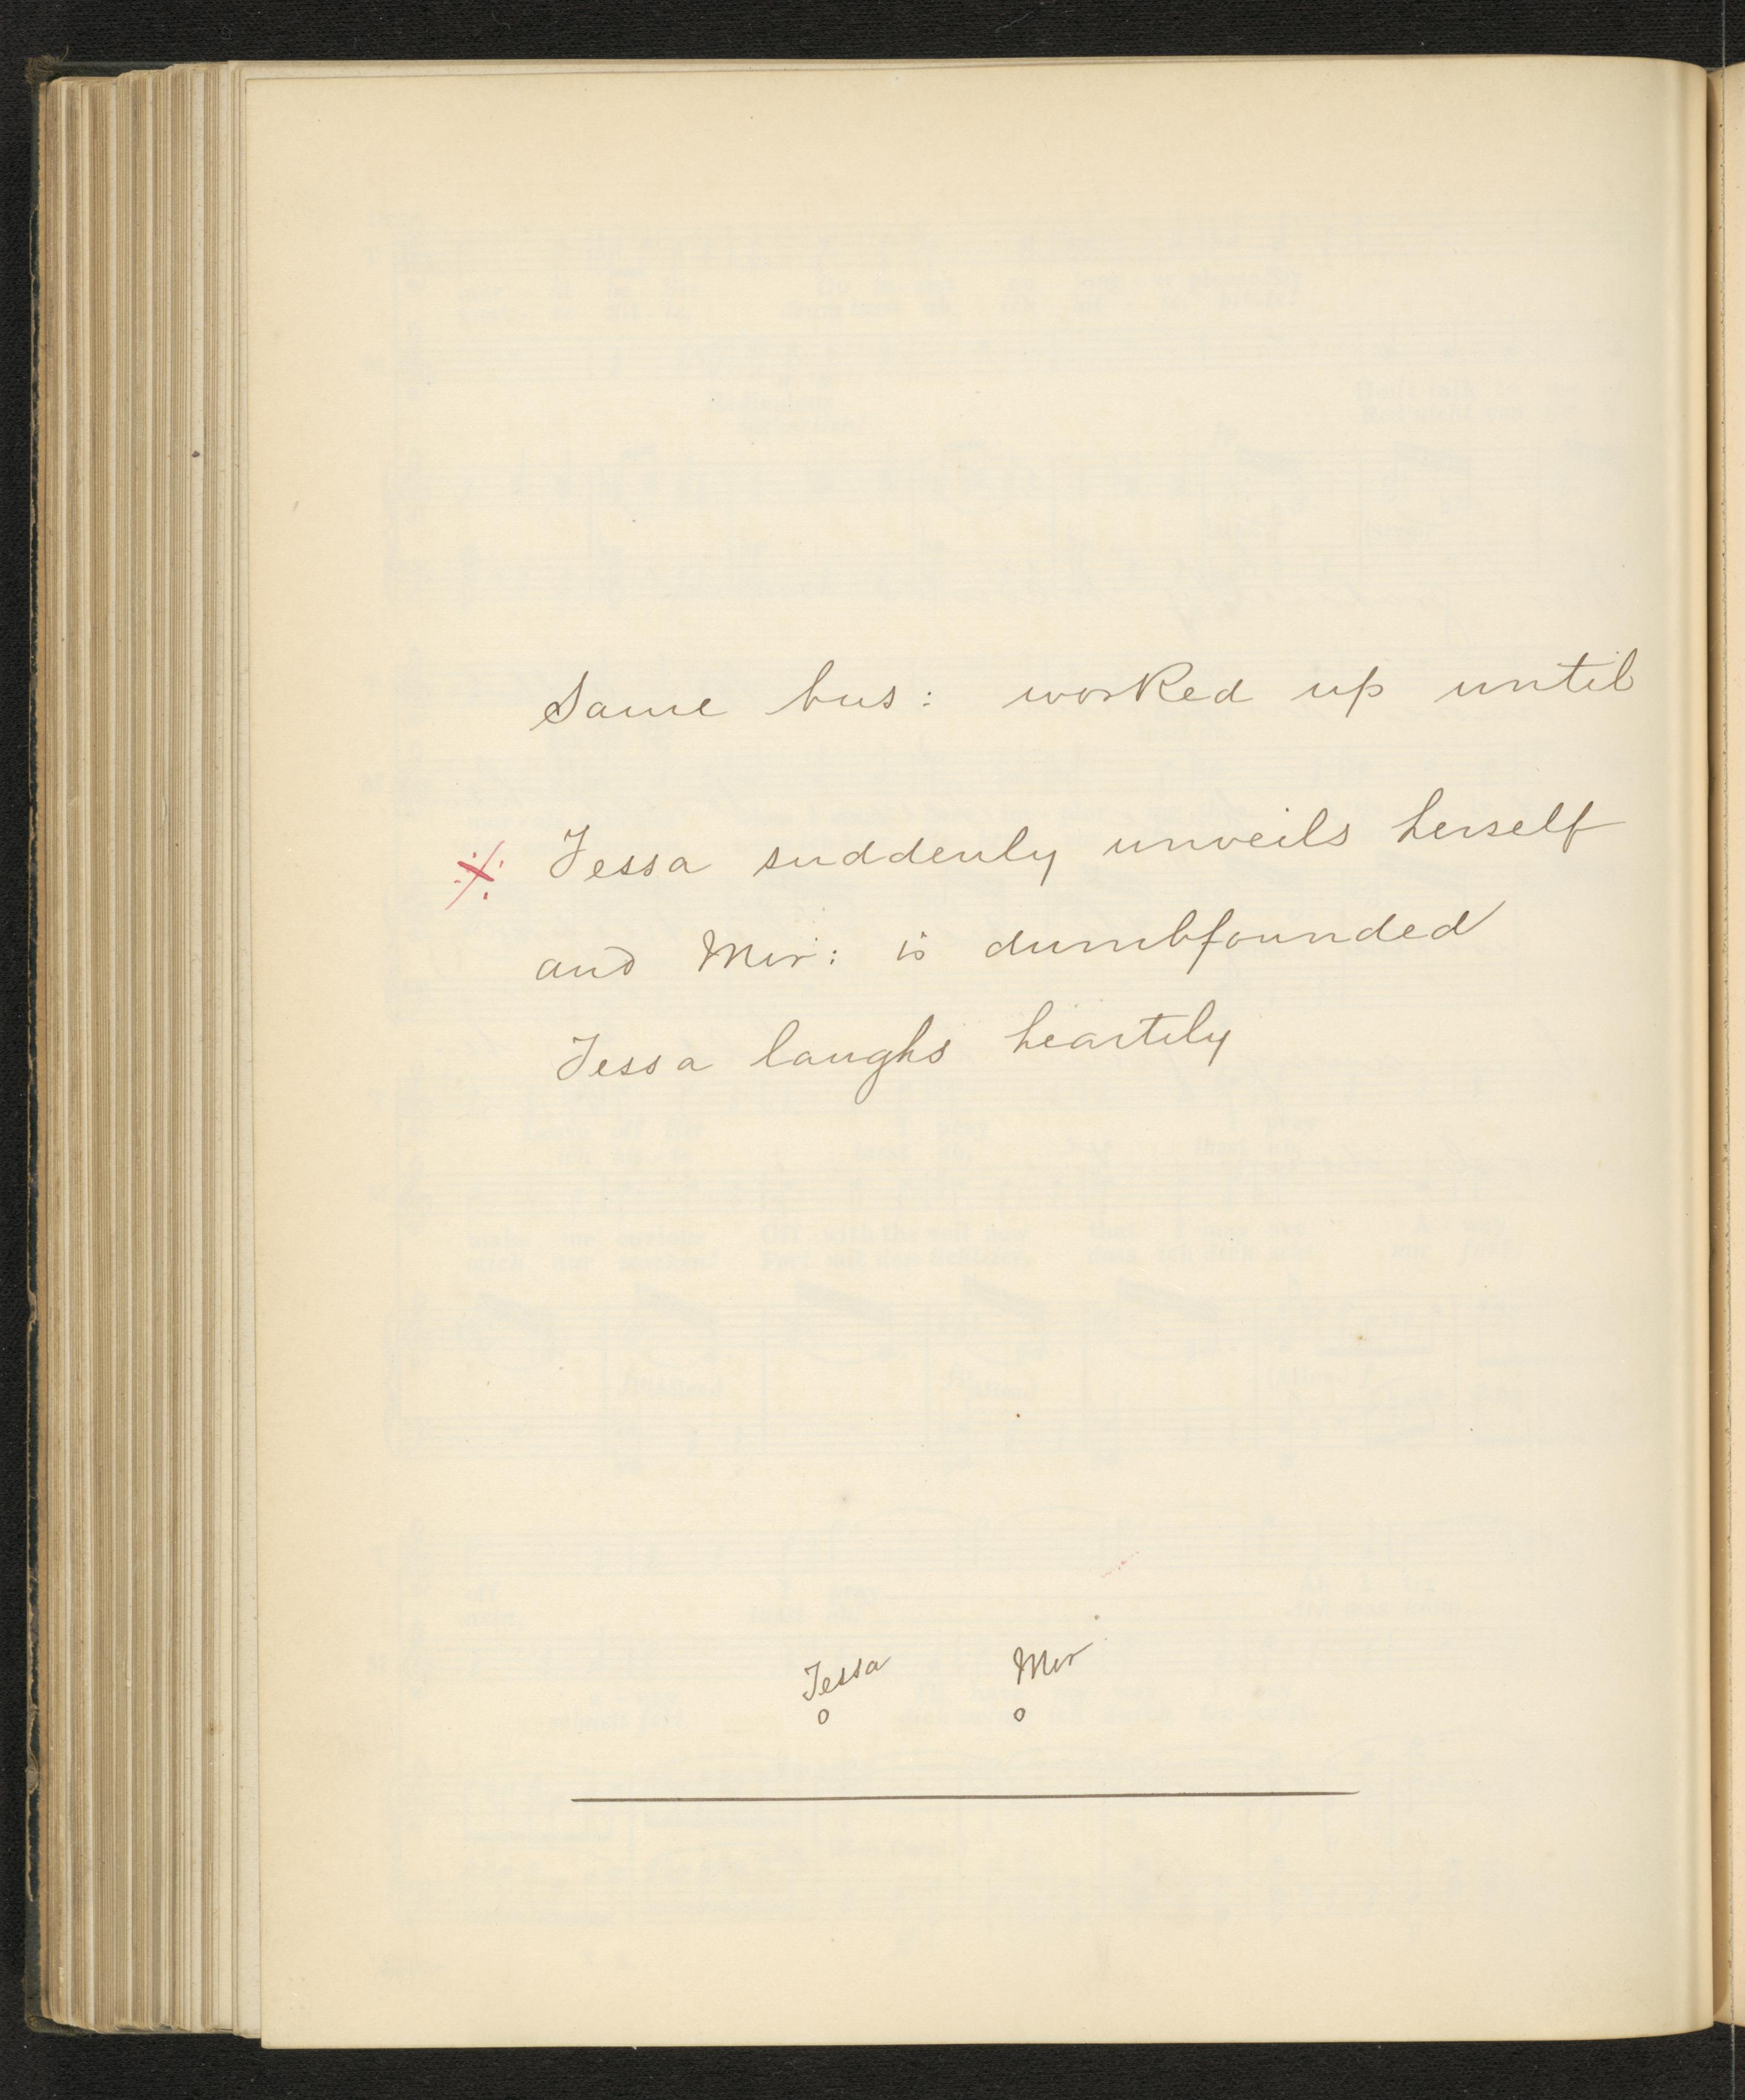 Same bus: worked up until
※ Tessa suddenly unveils herself
and Mir: is dumbfounded
Tessa laughs heartily
Tessa Mir
o o